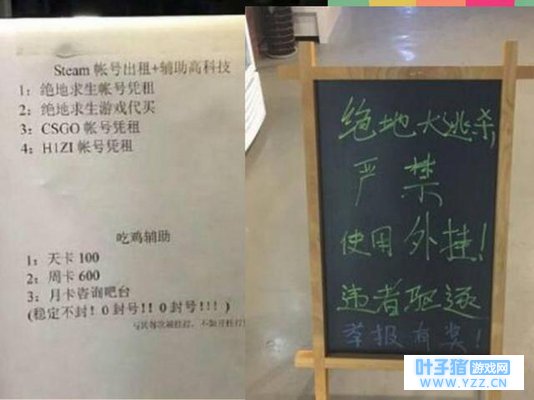 Steam 帐号出租+辅助高科技
1：绝地求生帐号凭租
2：绝地求生游戏代买
3：CSGO 帐号凭租
4：H1ZI 帐号凭租
吃鸡辅助
1：天卡 100
2：周卡 600
3：月卡咨询吧台
(稳定不封！0 封号！！0 封号！！！)
绝地大逃杀,
严禁
使用外挂!
违者驱逐
举报有奖!
叶子猪游戏网
www.YZZ.CN